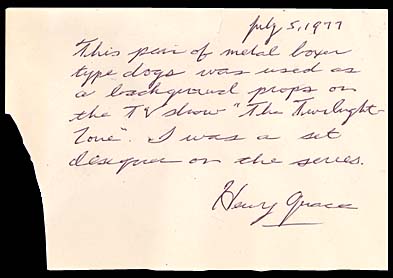 July 5, 1977
This pair of metal boxer
type dogs was used as
a background props on
the TV show "The Twilight-
Zone". I was a set
designer on the series.
Henry Grace